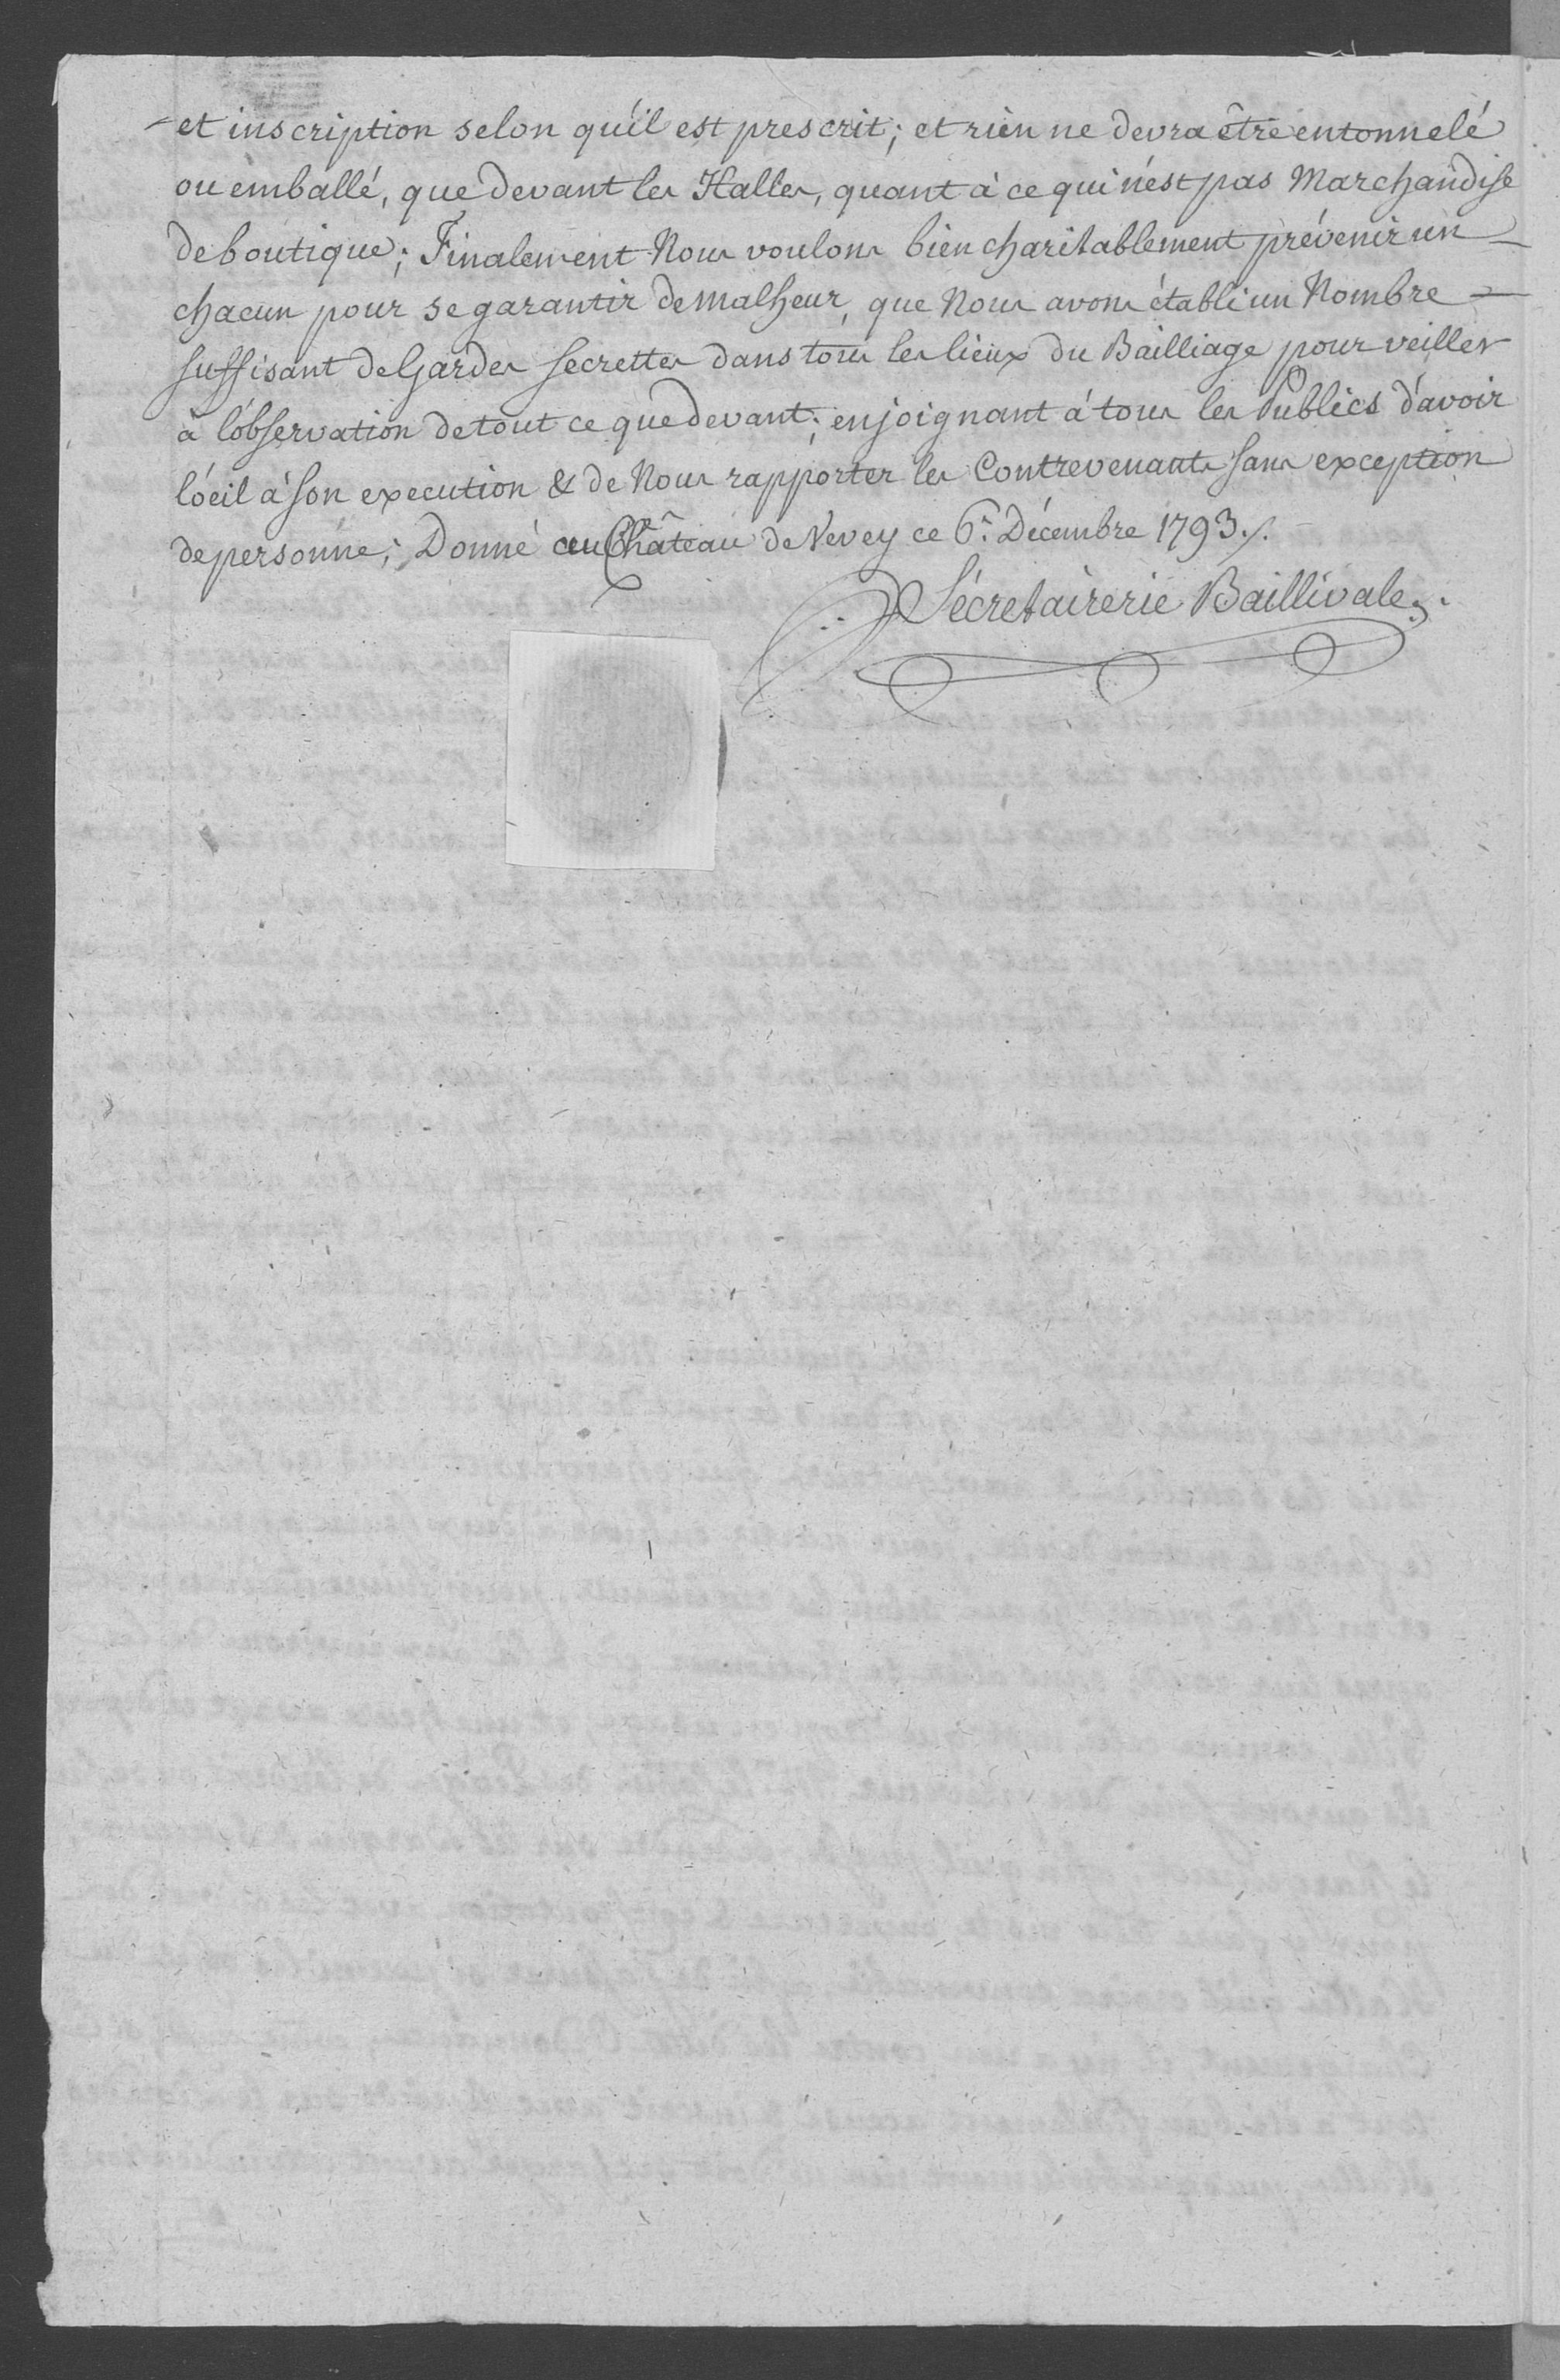 et inscription selon qu'il est prescrit; et rien ne devra être entonnelé
ou emballé, que devant les Halles, quant à ce qui n'est pas Marchandise
de boutique; Finalement Nous voulons bien charitablement prévenir un
chacun pour se garantir de malheur, que Nous avons établi un Nombre
suffisant de Gardes secrettes dans tous les lieux du Bailliage pour veiller
à l'observation de tout ce que devant; enjoignant à tous les Publics d'avoir
l'oeil à son execution & de Nous rapporter les Contrevenants sans exception
de personne; Donné au Château de Vevey ce 6.e Décembre 1793./.
Sécretairerie Baillivale.